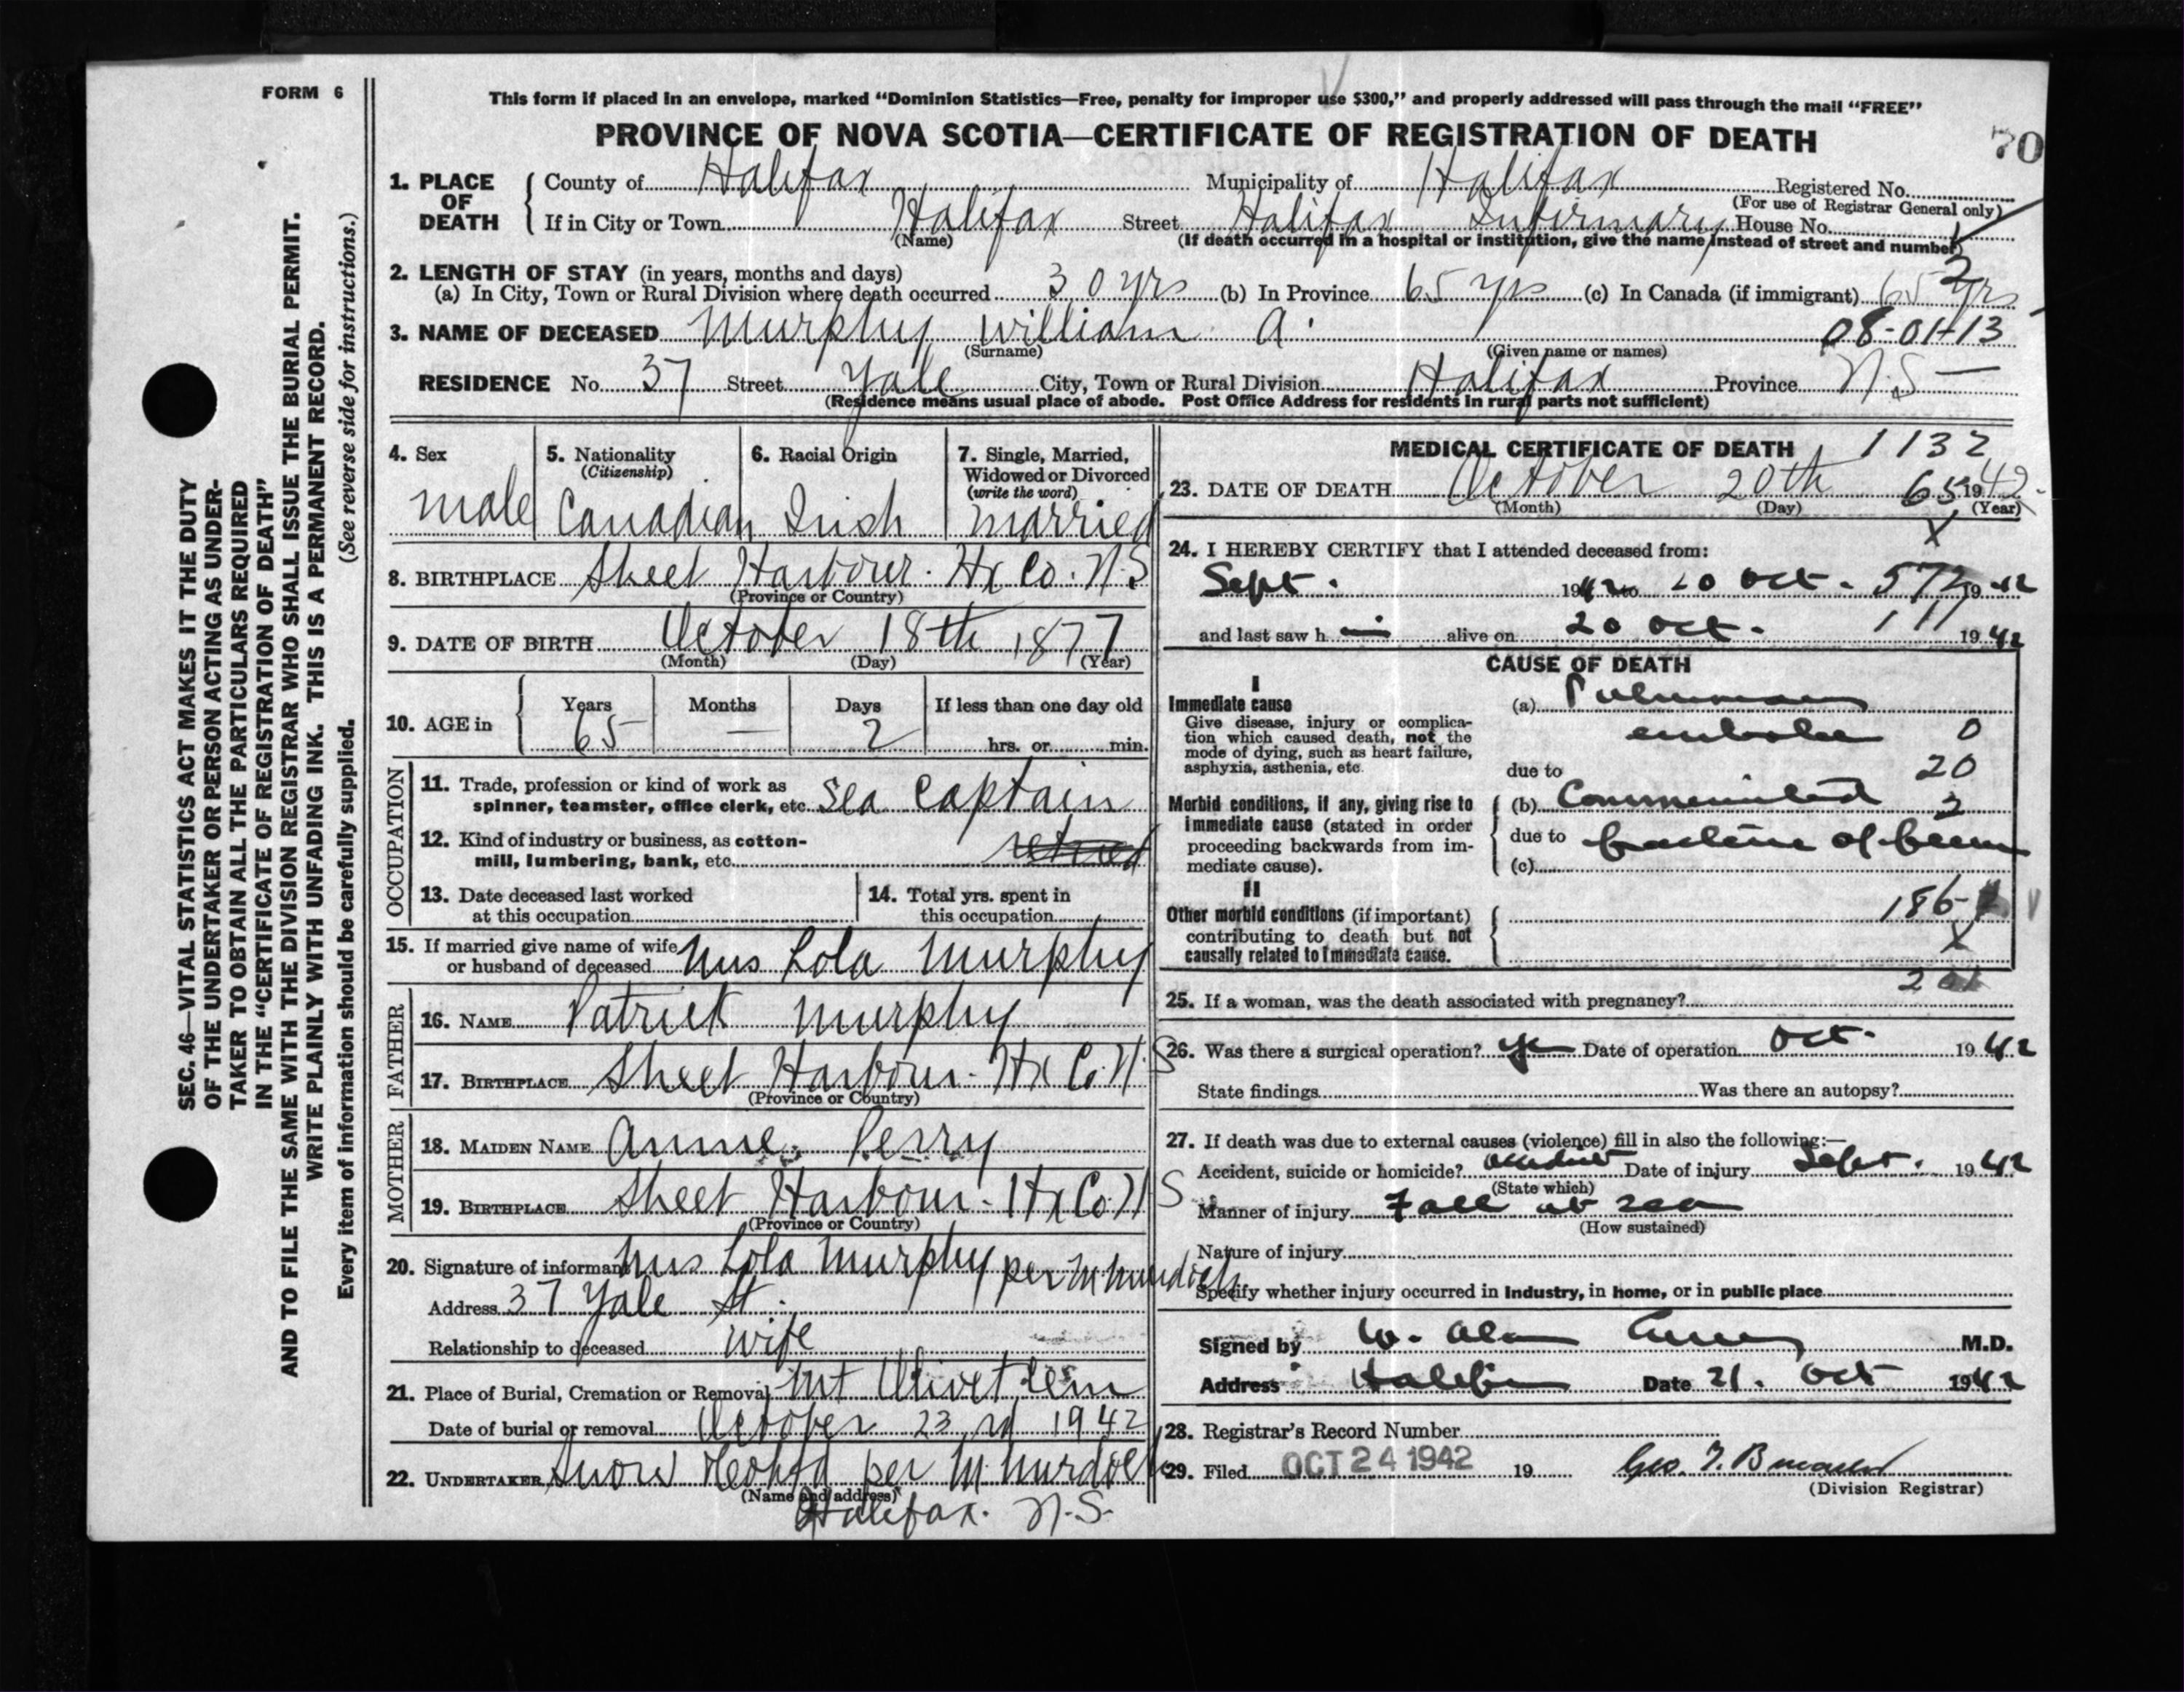 FORM 6
This form if placed in an envelope, marked “Dominion Statistics—Free, penalty for improper use $300,” and properly addressed will pass through the mail “FREE”
PROVINCE OF NOVA SCOTIA—CERTIFICATE OF REGISTRATION OF DEATH
70
1. PLACE OF DEATH
County of Halifax Municipality of Halifax Registered No.
(For use of Registrar General only)
If in City or Town Halifax Street Halifax Infirmary House No.
(Name) (If death occurred in a hospital or institution, give the name instead of street and number)
2. LENGTH OF STAY (in years, months and days)
(a) In City, Town or Rural Division where death occurred 30 yrs (b) In Province 65 yrs (c) In Canada (if immigrant) 65 yrs
2
3. NAME OF DECEASED Murphy William A. 08-01-13
(Surname) (Given name or names)
RESIDENCE No. 37 Street Yale City, Town or Rural Division Halifax Province N.S —
(Residence means usual place of abode. Post Office Address for residents in rural parts not sufficient)
4. Sex
male
5. Nationality
(Citizenship)
Canadian
6. Racial Origin
Irish
7. Single, Married,
Widowed or Divorced
(write the word)
married
8. BIRTHPLACE Sheet Harbour. Hx Co. N.S
(Province or Country)
9. DATE OF BIRTH October 18th 1877
(Month) (Day) (Year)
10. AGE in
Years Months Days If less than one day old
65 — 2 hrs. or min.
OCCUPATION
11. Trade, profession or kind of work as
spinner, teamster, office clerk, etc. Sea Captain
12. Kind of industry or business, as cotton-
mill, lumbering, bank, etc. retired
13. Date deceased last worked
at this occupation
14. Total yrs. spent in
this occupation
15. If married give name of wife
or husband of deceased Mrs Lola Murphy
FATHER
16. NAME Patrick Murphy
17. BIRTHPLACE Sheet Harbour. Hx Co. N.S
(Province or Country)
MOTHER
18. MAIDEN NAME Annie Perry
19. BIRTHPLACE Sheet Harbour. Hx Co. N S
(Province or Country)
20. Signature of informant Mrs Lola Murphy per M Murdoch
Address 37 Yale St.
Relationship to deceased wife
21. Place of Burial, Cremation or Removal Mt Olivet Cem
Date of burial or removal October 23rd 1942
22. UNDERTAKER Snow per M. Murdoch
(Name and address)
Halifax. N.S.
MEDICAL CERTIFICATE OF DEATH 1132
23. DATE OF DEATH October 20th 65 1942
(Month) (Day) (Year)
X
24. I HEREBY CERTIFY that I attended deceased from:
Sept. 1942 to 20 Oct. 572 1942
and last saw h im alive on 20 Oct. 111 1942
CAUSE OF DEATH
I
Immediate cause
Give disease, injury or complica-
tion which caused death, not the
mode of dying, such as heart failure,
asphyxia, asthenia, etc.
(a) Pulmonary
0
due to
20
Morbid conditions, if any, giving rise to
immediate cause (stated in order
proceeding backwards from im-
mediate cause).
(b) Comminuted 2
due to fracture of femur
(c)
II
Other morbid conditions (if important)
contributing to death but not
causally related to immediate cause.
186-
X
25. If a woman, was the death associated with pregnancy?
26. Was there a surgical operation? yes Date of operation Oct. 1942
State findings Was there an autopsy?
27. If death was due to external causes (violence) fill in also the following:—
Accident, suicide or homicide? accident Date of injury Sept. 1942
(State which)
Manner of injury Fall at sea
(How sustained)
Nature of injury
Specify whether injury occurred in industry, in home, or in public place
Signed by W. Alan Curry M.D.
Address Halifax Date 21. Oct 1942
28. Registrar's Record Number
29. Filed OCT 24 1942 19 Geo.
(Division Registrar)
SEC. 46—VITAL STATISTICS ACT MAKES IT THE DUTY
OF THE UNDERTAKER OR PERSON ACTING AS UNDER-
TAKER TO OBTAIN ALL THE PARTICULARS REQUIRED
IN THE “CERTIFICATE OF REGISTRATION OF DEATH”
AND TO FILE THE SAME WITH THE DIVISION REGISTRAR WHO SHALL ISSUE THE BURIAL PERMIT.
WRITE PLAINLY WITH UNFADING INK. THIS IS A PERMANENT RECORD.
Every item of information should be carefully supplied. (See reverse side for instructions.)